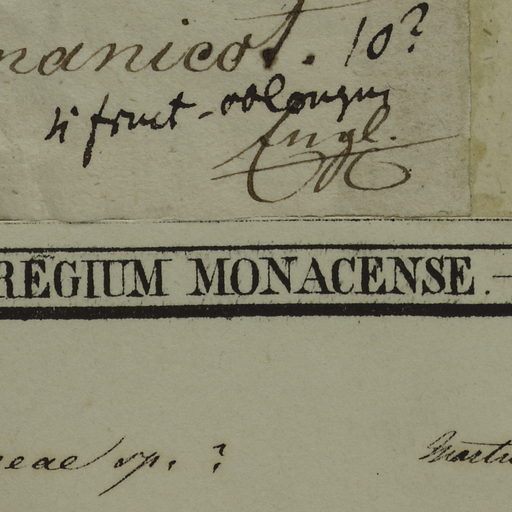 manicot. 10?
si fruit-oblongum
Engl.
REGIUM MONACENSE.
eae sp. ?
Martiu